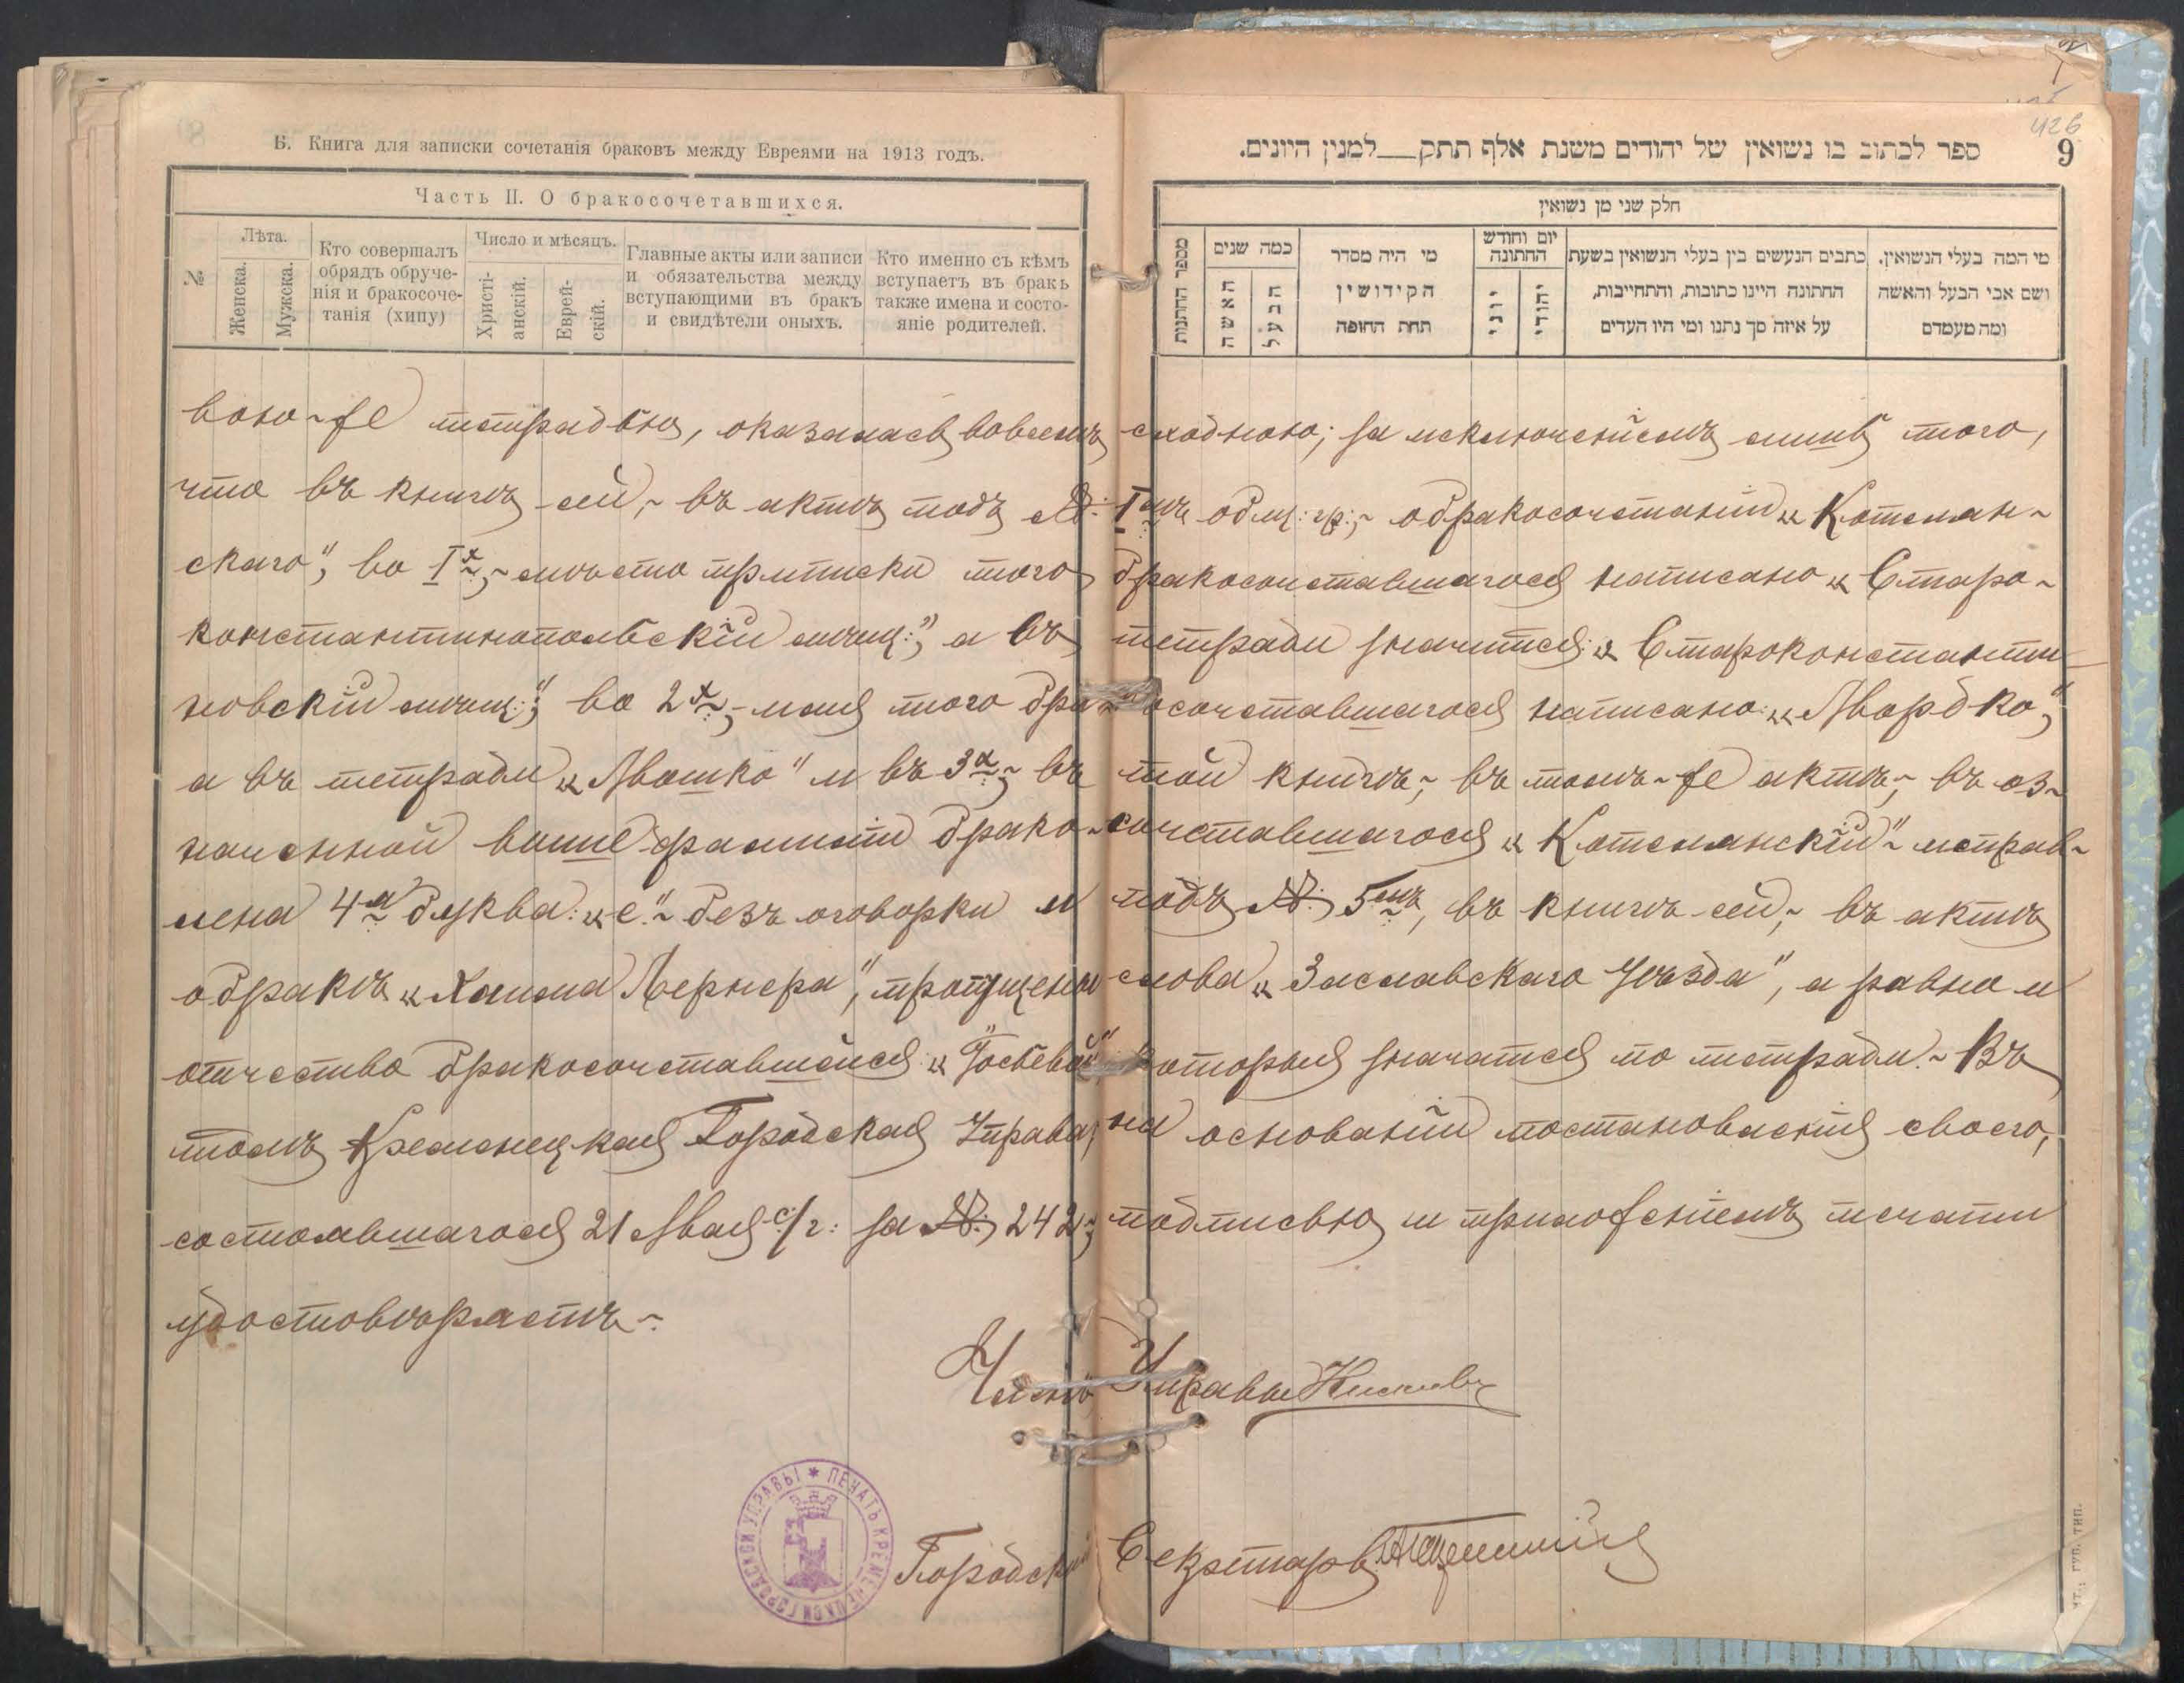 Б. Книга для записки сочетанія браковъ между Евреями на 1913 годъ.
Часть II. О бракосочетавшихся.
№
Лѣта.
Женска.
Мужска.
Кто совершалъ обрядъ обруче-
нія и бракосоче-
танія (хипу)
Число и мѣсяцъ.
Христі-
анскій.
Еврей-
скій.
Главные акты или записи
и обязательства между
вступающими въ бракъ
и свидѣтели оныхъ.
Кто именно съ кѣмъ
вступаетъ въ бракъ
также имена и состо-
яніе родителей.
426
9
ספר לכתוב בו נשואין של יהודים משנת אלף תתק__למנין היונים.
חלק שני מן נשואין
מספר החתנות
כמה שנים
האשה
הבעל
מי היה מסדר
הקידושין
תחת החופה
יום וחודש
החתונה
יוני
יהודי
כתבים הנעשים בין בעלי הנשואין בשעת
החתונה היינו כתובות, והתחייבות,
על איזה סך נתנו ומי היו העדים
מי המה בעלי הנשואין.
ושם אבי הבעל והאשה
ומה מעמדם
вою-же тетрадью, оказалась вовсемъ сходною; за исключеніемъ лишь того,
что въ книгѣ сей, въ актѣ подъ №: 1мъ общ: гр:, о бракосочетаніи „Котелян-
скаго", во 1х, вмѣсто приписки того бракосочетавшагося написано „Старо-
константинопольскій мѣщ:", а въ тетради значится: „Староконстанти
новскій мѣщ:"; во 2х, имя того бракосочетавшагося написано: „Авордко",
а въ тетради „Авошко" и въ 3х, въ той книгѣ, въ томъ-же актѣ, въ оз-
наченной выше фамиліи бракосочетавшагося „Котелянскій" исправ-
лена 4я буква: „е" безъ оговорки и подъ №: 5мъ, въ книгѣ сей, въ актѣ
о бракѣ „Хаима Лернера", пропущены слова „Заславскаго Уѣзда", а равно и
отчество бракосочетавшейся которыя значатся по тетради. Въ
томъ Кременецкая Городская Управа, на основаніи постановленія своего,
состоявшагося 21 Мая с/г: за №: 242, подписью и приложеніемъ печати
удостовѣряетъ.
Членъ Управы
ПЕЧАТЬ КРЕМЕНЕЦКОЙ ГОРОДСКОЙ УПРАВЫ
Городской Секретарь